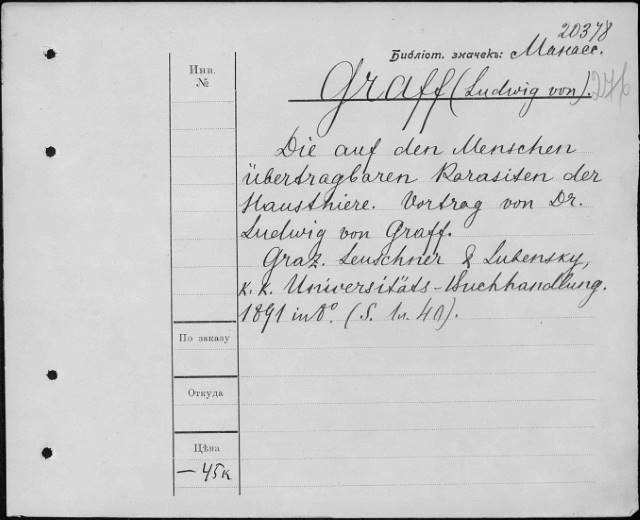 20378
Библіот. значекъ: Манасс.
Инв.
№
Graff (Ludwig von).
Die auf den Menschen
übertragbaren Parasiten der
Hausthiere. Vortrag von Dr.
Ludwig von Graff.
Graz. Leuschner & Lubensky,
k. k. Universitäts-Buchhandlung.
1891 in 8°. (S. 1n. 40).
По заказу
Откуда
Цѣна
— 45к